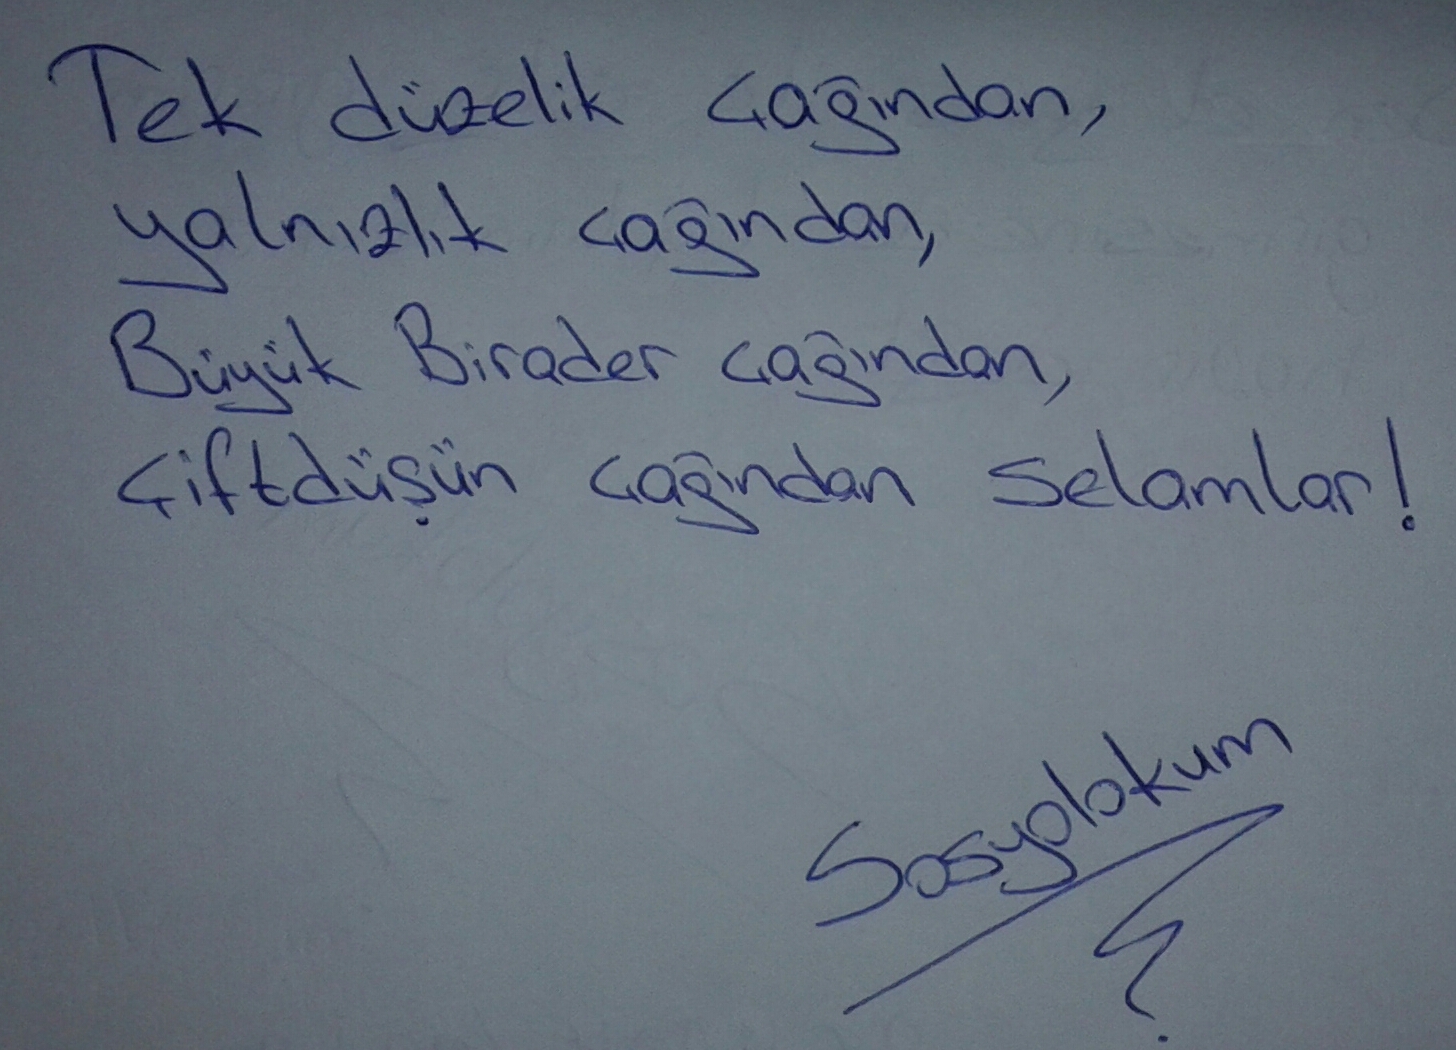 Tek düzelik çağından,
yalnızlık çağından,
Büyük Birader çağından,
Çiftdüşün çağından selamlar!
Sosyolokum